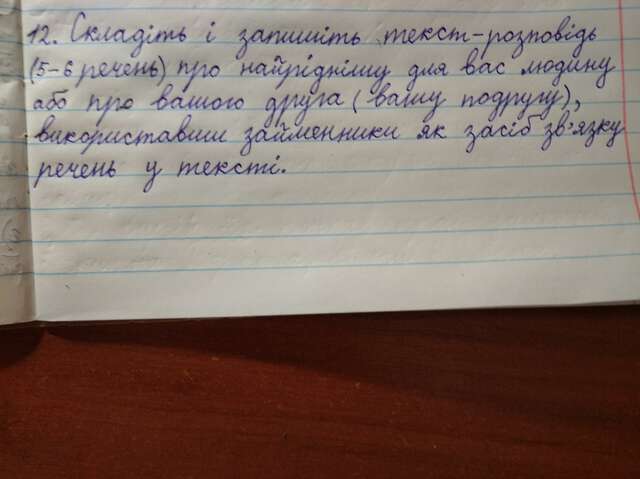 12. Складіть і запишіть текст-розповідь
(5-6 речень) про найріднішу для вас людину
або про вашого друга (вашу подругу),
використавши займенники як засіб зв'язку
речень у тексті.